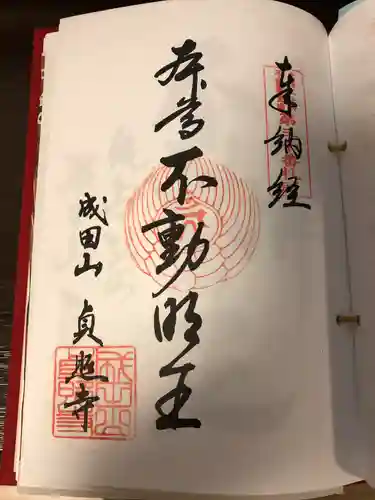 奉納経
本尊不動明王
成田山 貞照寺